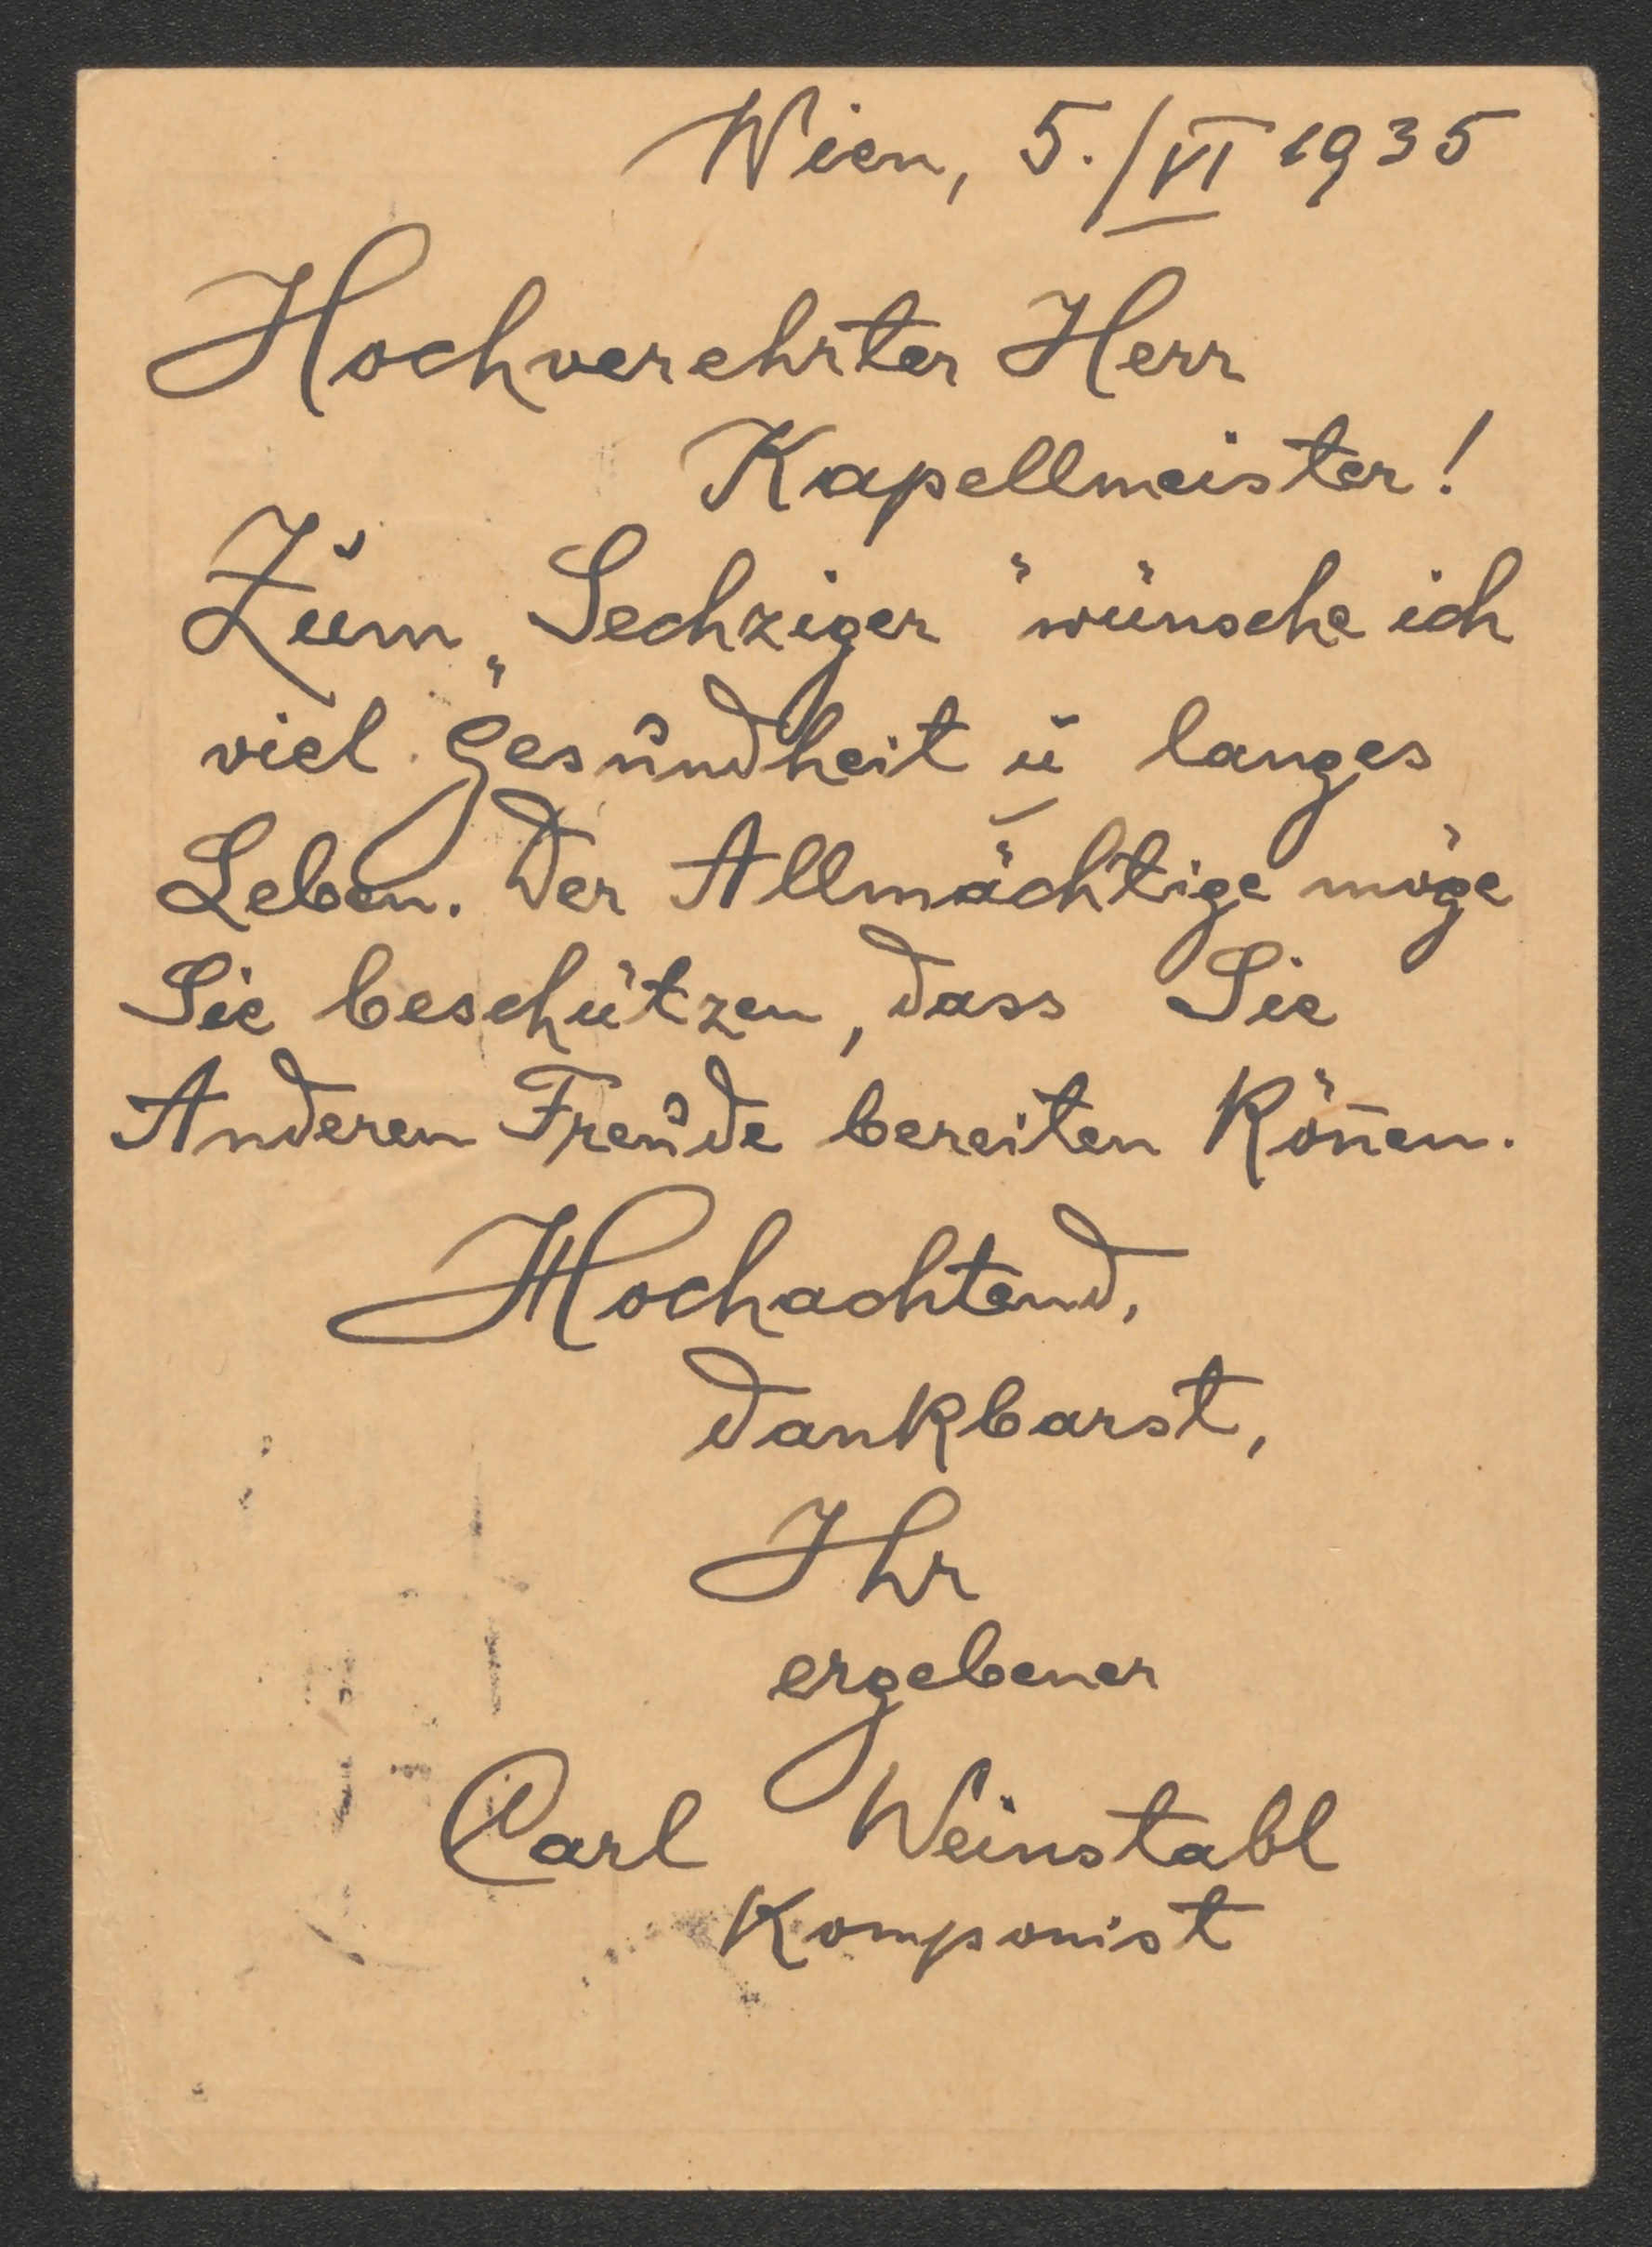 Wien, 5./VI 1935
Hochverehrter Herr
Kapellmeister!
Zum „Sechziger" wünsche ich
viel Gesundheit u langes
Leben. Der Allmächtige möge
Sie beschützen, dass Sie
Anderen Freude bereiten kön̄en.
Hochachtend,
dankbarst,
Ihr
ergebener
Carl Weinstabl
Komponist